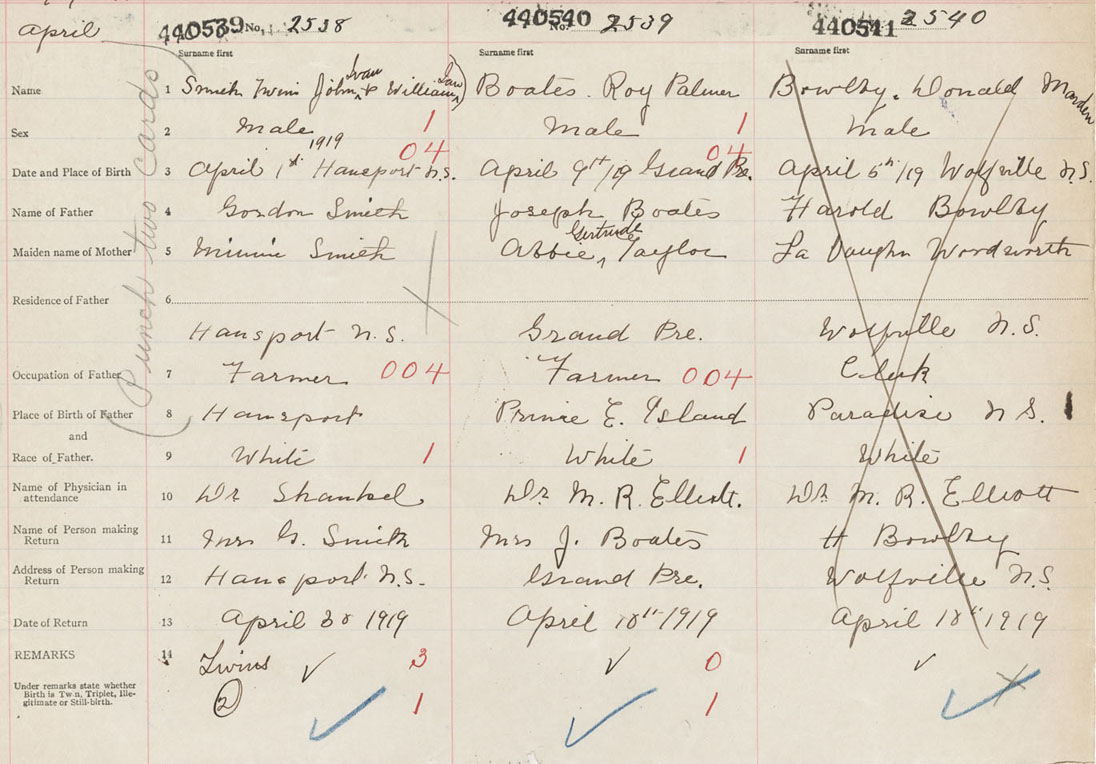 April 440539 No. 2538 440540 No. 2539 440541 2540
Surname first Surname first Surname first
Name 1 Smith Twins John Ivan & William Ian) Boates. Roy Palmer Bowlby, Donald Marden
Sex 2 Male 1 Male 1 Male
1919 04 04
Date and Place of Birth 3 April 1st Hansport N.S. April 9th/19 Grand Pre. April 5th/19 Wolfville N.S.
Name of Father 4 Gordon Smith Joseph Boates Harold Bowlby
Maiden name of Mother 5 Minnie Smith Abbie Gertrude Taylor La Vaughn Wordsworth
Residence of Father 6
Hansport N.S. Grand Pre. Wolfville N.S.
Occupation of Father 7 Farmer 004 Farmer 004 Clerk
Place of Birth of Father 8 Hansport Prince E. Island Paradise N.S.
and
Race of Father. 9 White 1 White 1 White
Name of Physician in
attendance 10 Dr Shankel Dr. M. R. Elliott. Dr. M. R. Elliott
Name of Person making
Return 11 Mrs G. Smith Mrs J. Boates H Bowlby
Address of Person making
Return 12 Hansport N.S. Grand Pre. Wolfville N.S.
Date of Return 13 April 30 1919 April 10th 1919 April 10th 1919
REMARKS 14 Twins ✓ 3 ✓ 0 ✓
Under remarks state whether
Birth is Twin, Triplet, Ille-
gitimate or Still-birth.
2 1 1
(Punch two cards)